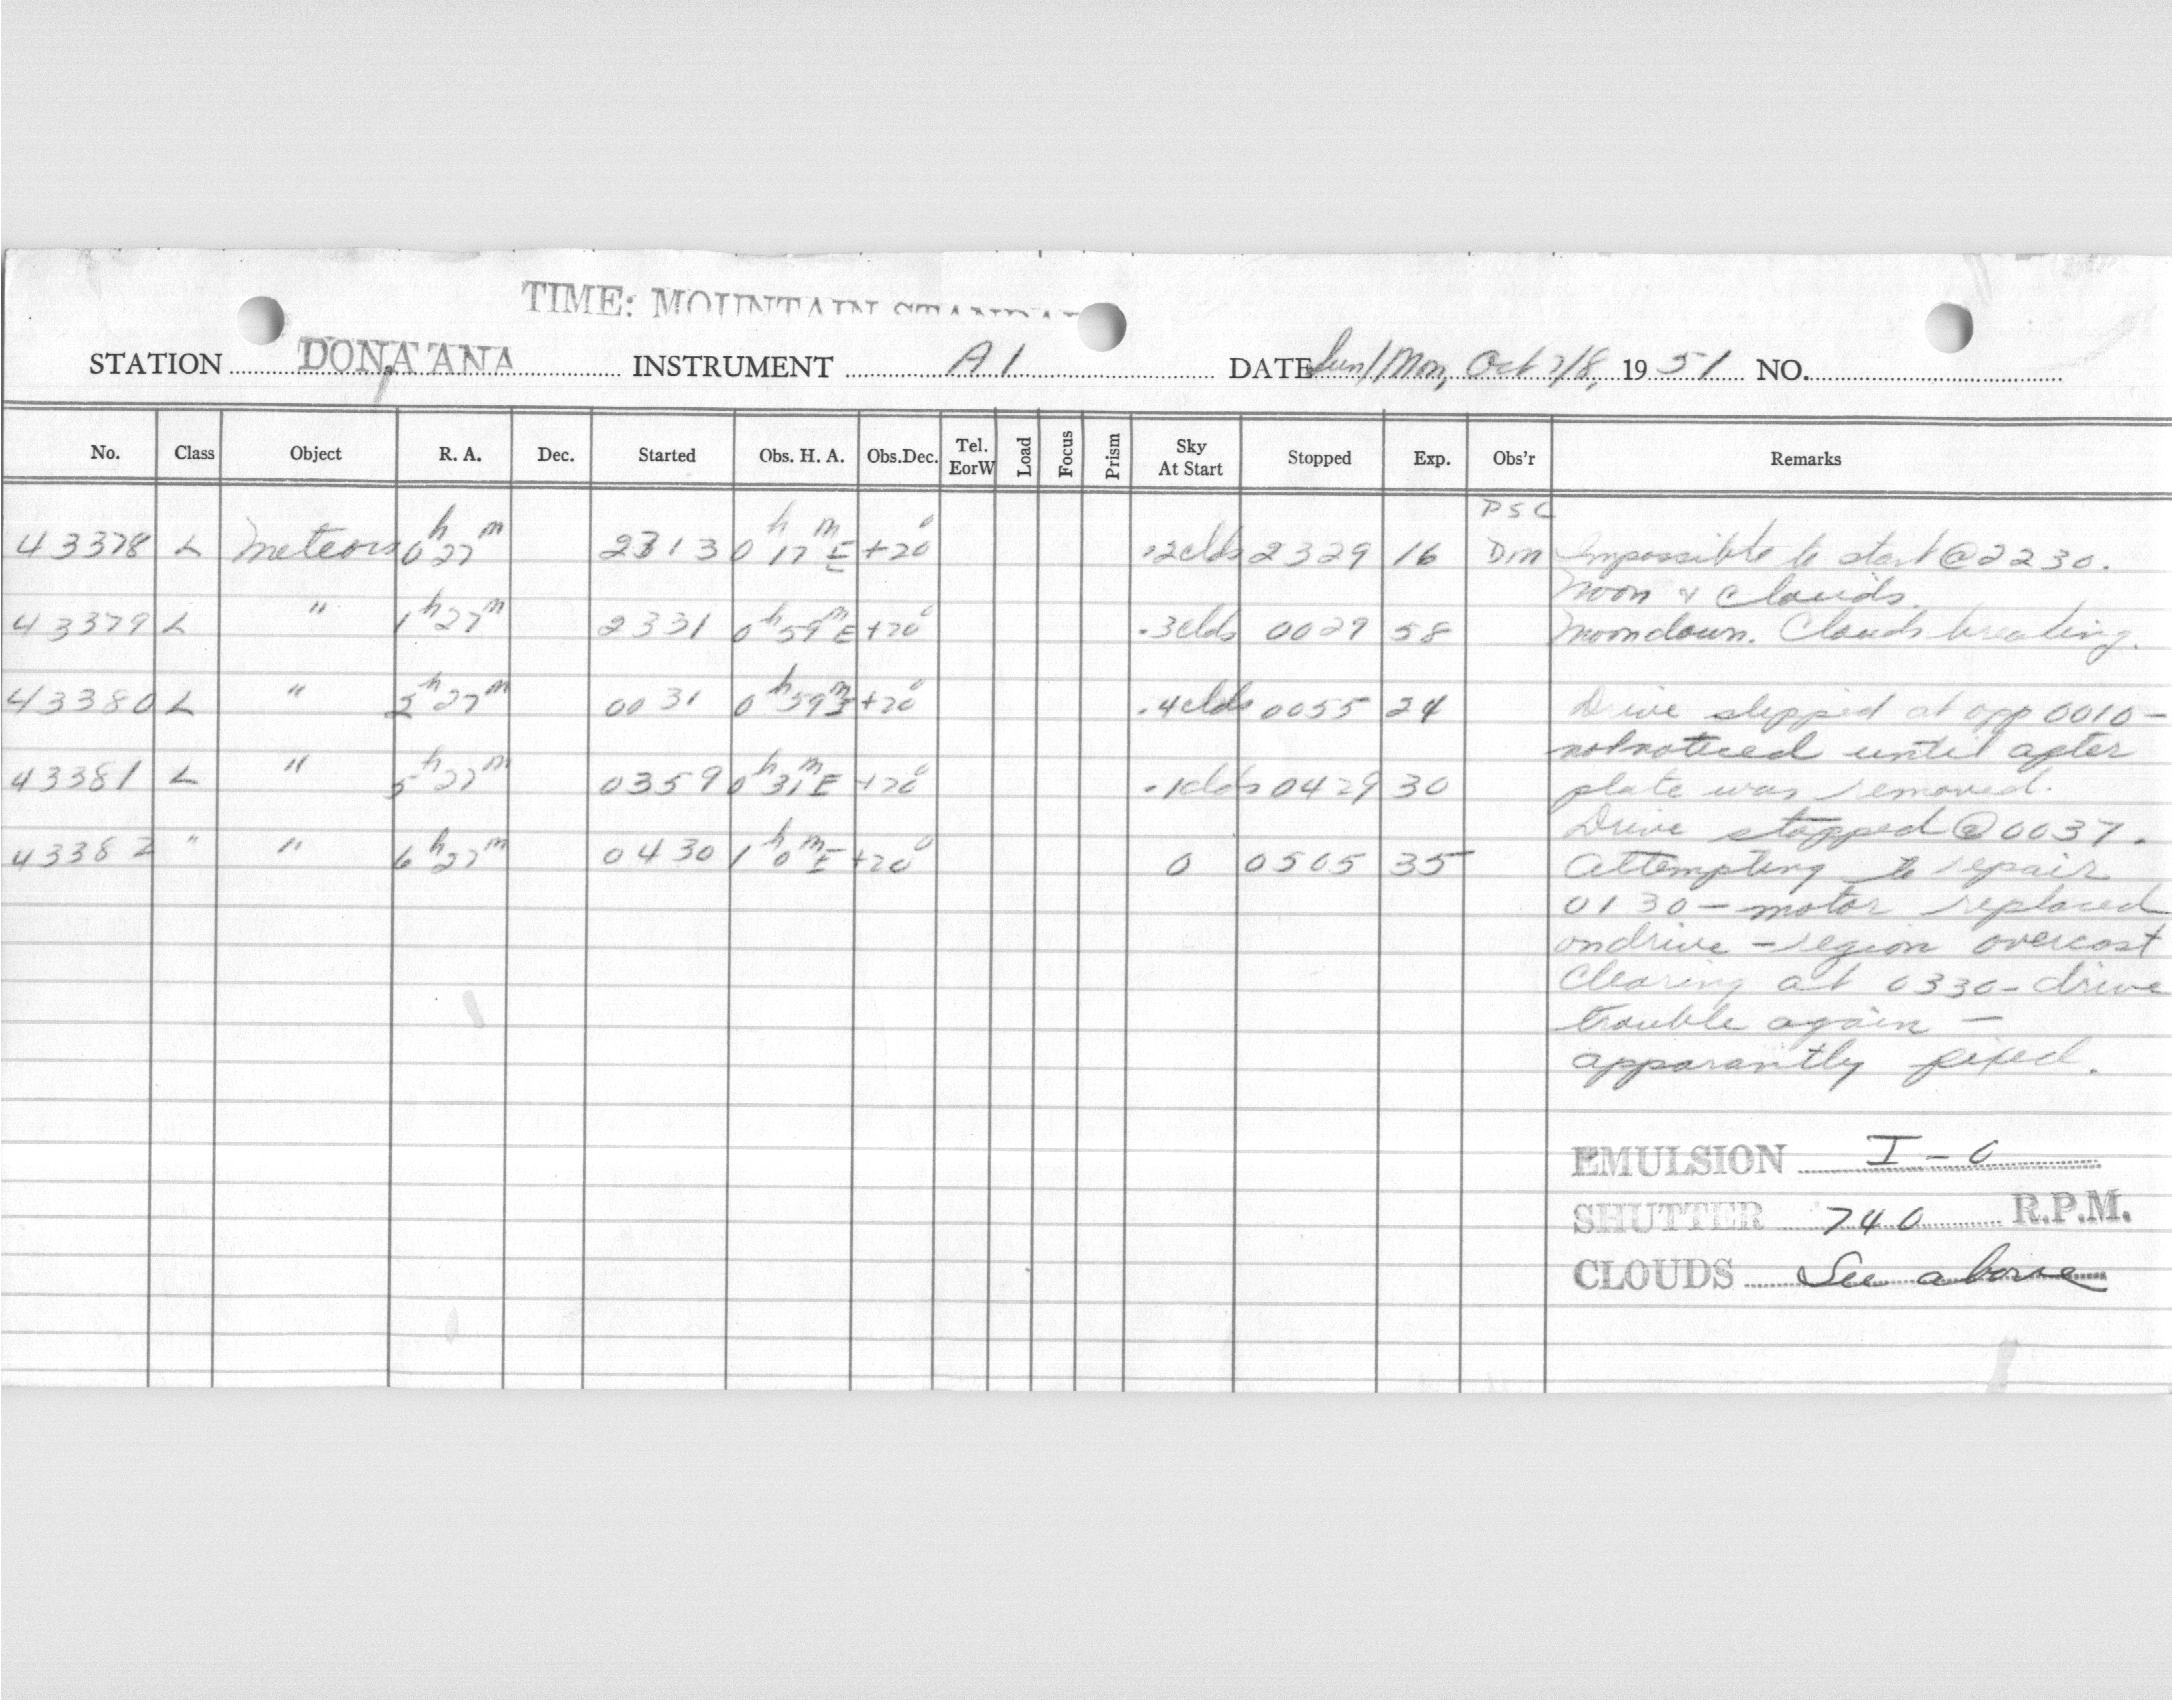 TIME: MOUNTAIN STANDA
STATION DONA ANA INSTRUMENT A1 DATE Sun/Mon, Oct 7/8, 1951 NO.
No. Class Object R. A. Dec. Started Obs. H. A. Obs.Dec. Tel. EorW Load Focus Prism Sky At Start Stopped Exp. Obs'r Remarks
PSC
43378 L Meteors 0h 27m 2313 0h 17m E +20° .2clds 2329 16 DM Impossible to start @ 2230.
Moon & clouds.
43379 L " 1h 27m 2331 0h 59m E +20° .3clds 0029 58 Moon down. Clouds breaking.
43380 L " 2h 27m 0031 0h 59m E +20° .4clds 0055 24 Drive slipped at app 0010-
not noticed until after
43381 L " 5h 27m 0359 0h 31m E +20° .1clds 0429 30 plate was removed.
Drive stopped @ 0037.
43382 " " 6h 27m 0430 1h 0m E +20° 0 0505 35 Attempting to repair
0130 - motor replaced
on drive - region overcast
Clearing at 0330 - drive
trouble again -
apparantly fixed.
EMULSION I-O
SHUTTER 740 R.P.M.
CLOUDS See above